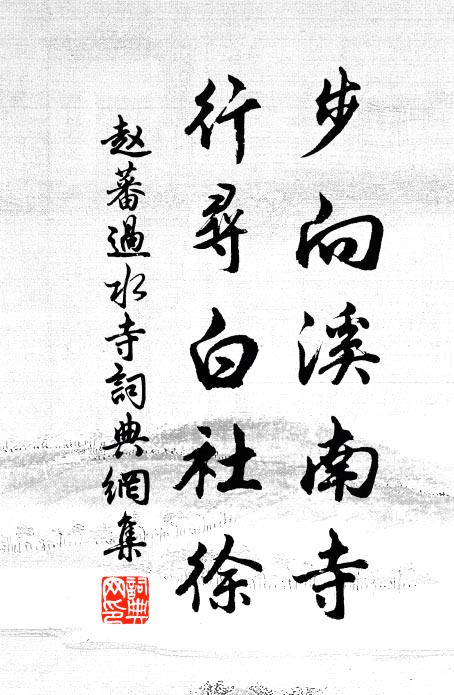 步向溪南寺
行尋白社徐
赵蕃過水寺詞典網集
詞典网印